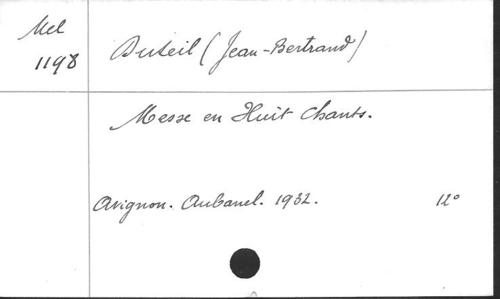 Mel
1198
Duteil (Jean-Bertrand)
Messe en Huit Chants.
Avignon. Aubanel. 1932. 12°